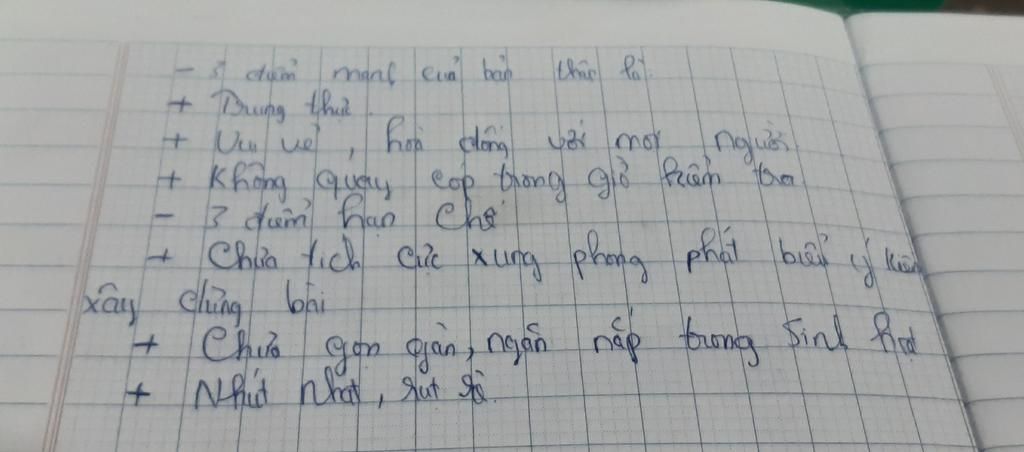 - 3 điểm mạnh của bản thân là
+ Trung thực
+ Vui vẻ, hoà đồng với mọi người
+ Không quay cóp trong giờ kiểm tra
- 3 điểm hạn chế
+ Chưa tích cực xung phong phát biểu ý kiến
xây dựng bài
+ Chưa gọn gàng, ngăn nắp trong sinh hoạt
+ Nhút nhát, rụt rè.